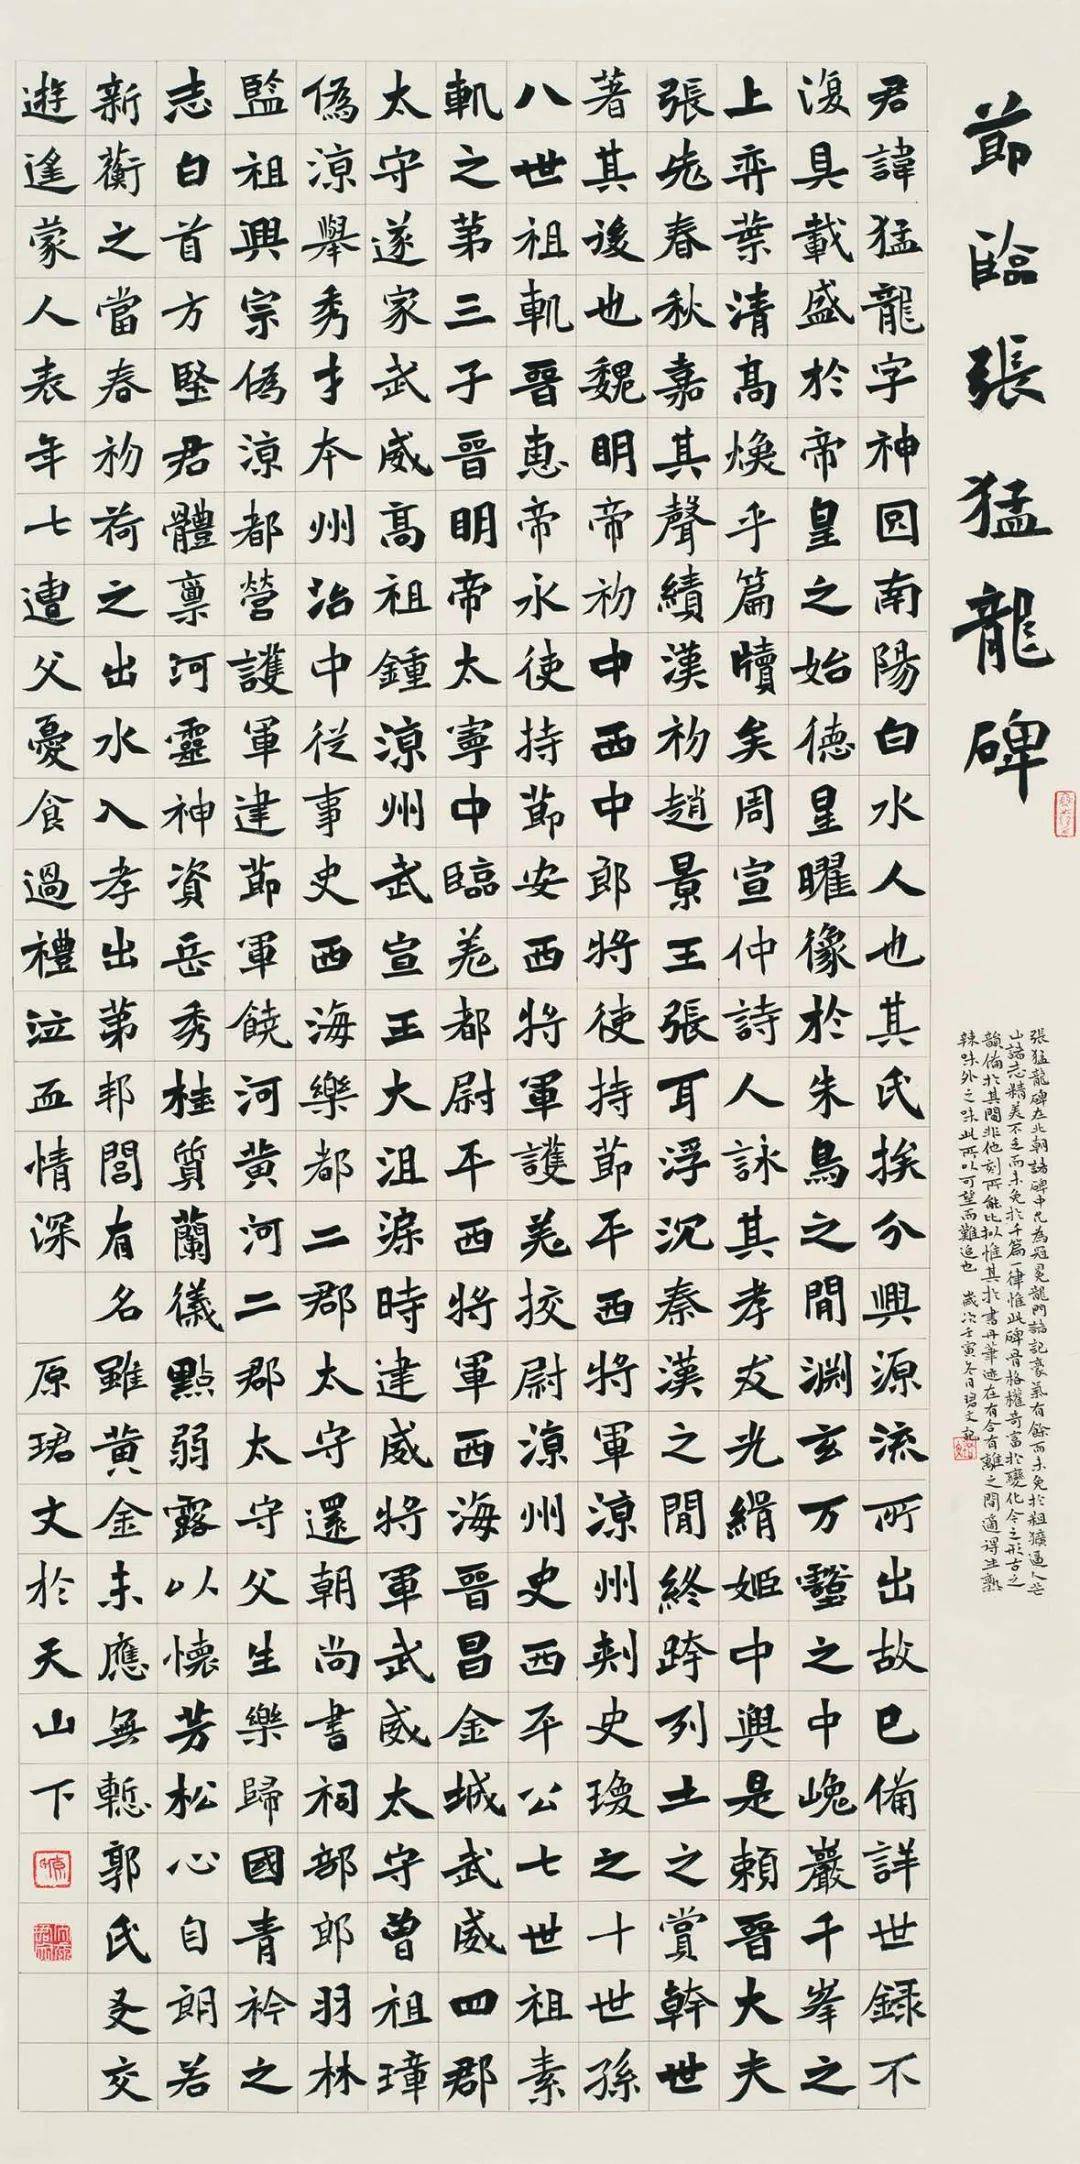 莭臨張猛龍碑
張猛龍碑在北朝諸碑中允為冠冕龍門諸記豪氣有餘而未免於粗獷逼人芒
山諸志精美不乏而未免於千篇一律惟此碑骨格權奇富於變化今之形古之
韻備於其間非他刻所能比擬惟其於書丹筆迹在有合有離之間適得生熟
辣味外之味此所以可望而難追也 歲次壬寅冬日珺文記
君諱猛龍字神囧南陽白水人也其氏族分興源流所出故已備詳世錄不
復具載盛於帝皇之始德星曜像於朱鳥之閒淵玄万壑之中巉巖千峯之
上弈葉清高煥乎篇牘矣周宣仲詩人詠其孝友光緝姬中興是賴晉大夫
張老春秋嘉其聲績漢初趙景王張耳浮沉秦漢之閒終跨列土之賞幹世
著其後也魏明帝初中西中郎將使持莭平西將軍涼州刺史瓊之十世孫
八世祖軌晉惠帝永使持莭安西將軍護羌校尉涼州史西平公七世祖素
軌之第三子晉明帝太寧中臨羌都尉平西將軍西海晉昌金城武威四郡
太守遂家武威高祖鍾涼州武宣王大沮渠時建威將軍武威太守曾祖璋
偽涼舉秀才本州治中從事史西海樂都二郡太守還朝尚書祠部郎羽林
監祖興宗偽涼都營護軍建莭軍饒河黃河二郡太守父生樂歸國青衿之
志白首方堅君體稟河靈神資岳秀桂質蘭儀點弱露以懷芳松心自朗若
新蘅之當春初荷之出水入孝出第邦閭有名雖黃金未應無慙郭氏友交
遊遙蒙人表年七遭父憂食過禮泣血情深 原珺文於天山下